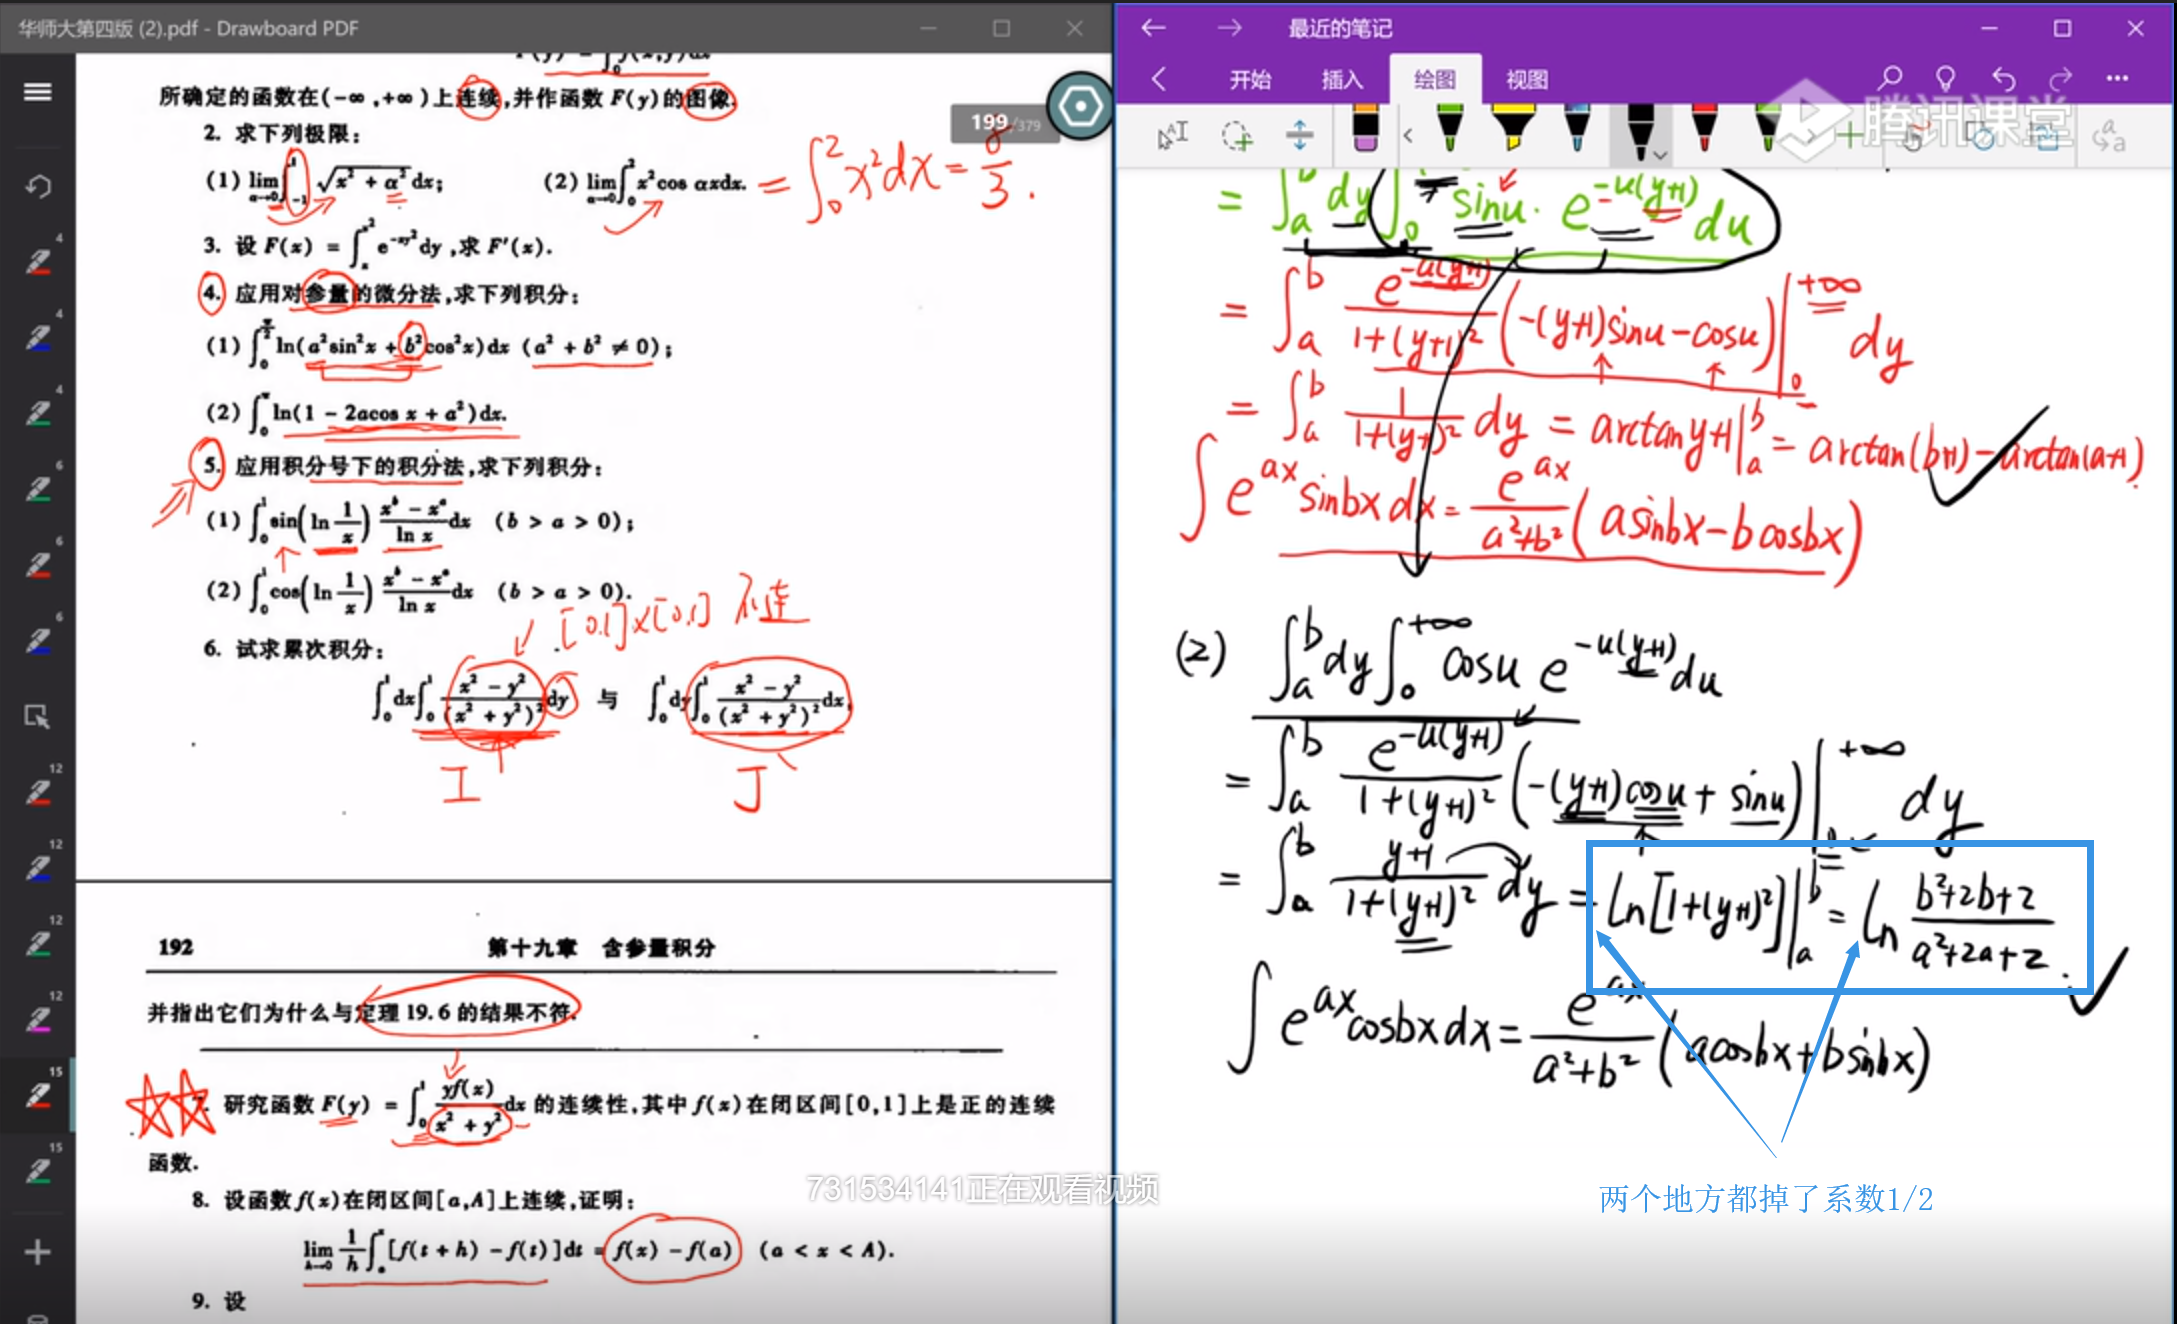 华师大第四版 (2).pdf - Drawboard PDF
199 /379
所确定的函数在(-∞,+∞)上连续,并作函数 F(y)的图像.
2. 求下列极限:
(1) lim_{α→0}∫_{-1}^{1} √(x² + α²) dx; (2) lim_{α→0}∫_0^2 x²cos αxdx. = ∫_0^2 x²dx = 8/3 .
3. 设 F(x) = ∫_x^{x²} e^{-xy²} dy ,求 F′(x).
4. 应用对参量的微分法,求下列积分:
(1) ∫_0^{π/2} ln(a²sin²x + b²cos²x)dx (a² + b² ≠ 0);
(2) ∫_0^π ln(1 - 2acos x + a²)dx.
5. 应用积分号下的积分法,求下列积分:
(1) ∫_0^1 sin(ln 1/x) (x^b - x^a)/ln x dx (b > a > 0);
(2) ∫_0^1 cos(ln 1/x) (x^b - x^a)/ln x dx (b > a > 0).
[0,1]×[0,1] 不连
6. 试求累次积分:
∫_0^1 dx∫_0^1 (x² - y²)/(x² + y²)² dy 与 ∫_0^1 dy∫_0^1 (x² - y²)/(x² + y²)² dx,
I J
192 第十九章 含参量积分
并指出它们为什么与定理 19.6 的结果不符.
7. 研究函数 F(y) = ∫_0^1 yf(x)/(x² + y²) dx 的连续性,其中 f(x)在闭区间[0,1]上是正的连续
函数.
8. 设函数 f(x)在闭区间[a,A]上连续,证明:
lim_{h→0} 1/h ∫_a^x [f(t + h) - f(t)]dt = f(x) - f(a) (a < x < A).
9. 设
4
4
4
6
6
6
12
12
12
12
15
15
731534141正在观看视频
最近的笔记
开始 插入 绘图 视图
腾讯课堂
= ∫_a^b dy ∫_0 sinu · e^{-u(y+1)} du
= ∫_a^b e^{-u(y+1)}/(1+(y+1)²) (-(y+1)sinu-cosu)|_0^{+∞} dy
= ∫_a^b 1/(1+(y+1)²) dy = arctan y+1|_a^b = arctan(b+1) - arctan(a+1).
∫ e^{ax} sinbx dx = e^{ax}/(a²+b²) (asinbx-bcosbx)
(2) ∫_a^b dy ∫_0^{+∞} cosu e^{-u(y+1)} du
= ∫_a^b e^{-u(y+1)}/(1+(y+1)²) (-(y+1)cosu + sinu)|_0^{+∞} dy
= ∫_a^b (y+1)/(1+(y+1)²) dy = ln[1+(y+1)²]|_a^b = ln (b²+2b+2)/(a²+2a+2) .
∫ e^{ax} cosbx dx = e^{ax}/(a²+b²) (acosbx+bsinbx)
两个地方都掉了系数1/2